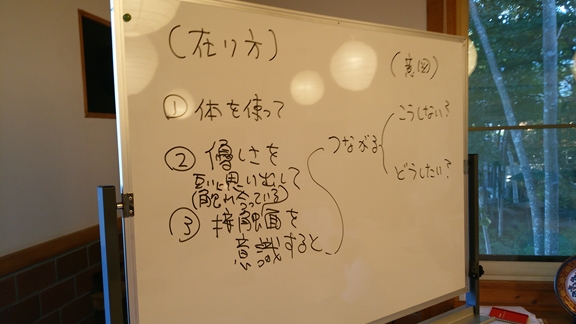 (在り方)
① 体を使って
② 優しさを
互いに思い出して
(触れ合っている)
③ 接触面を
意識すると
つながる
(意図)
こうしない?
どうしたい?